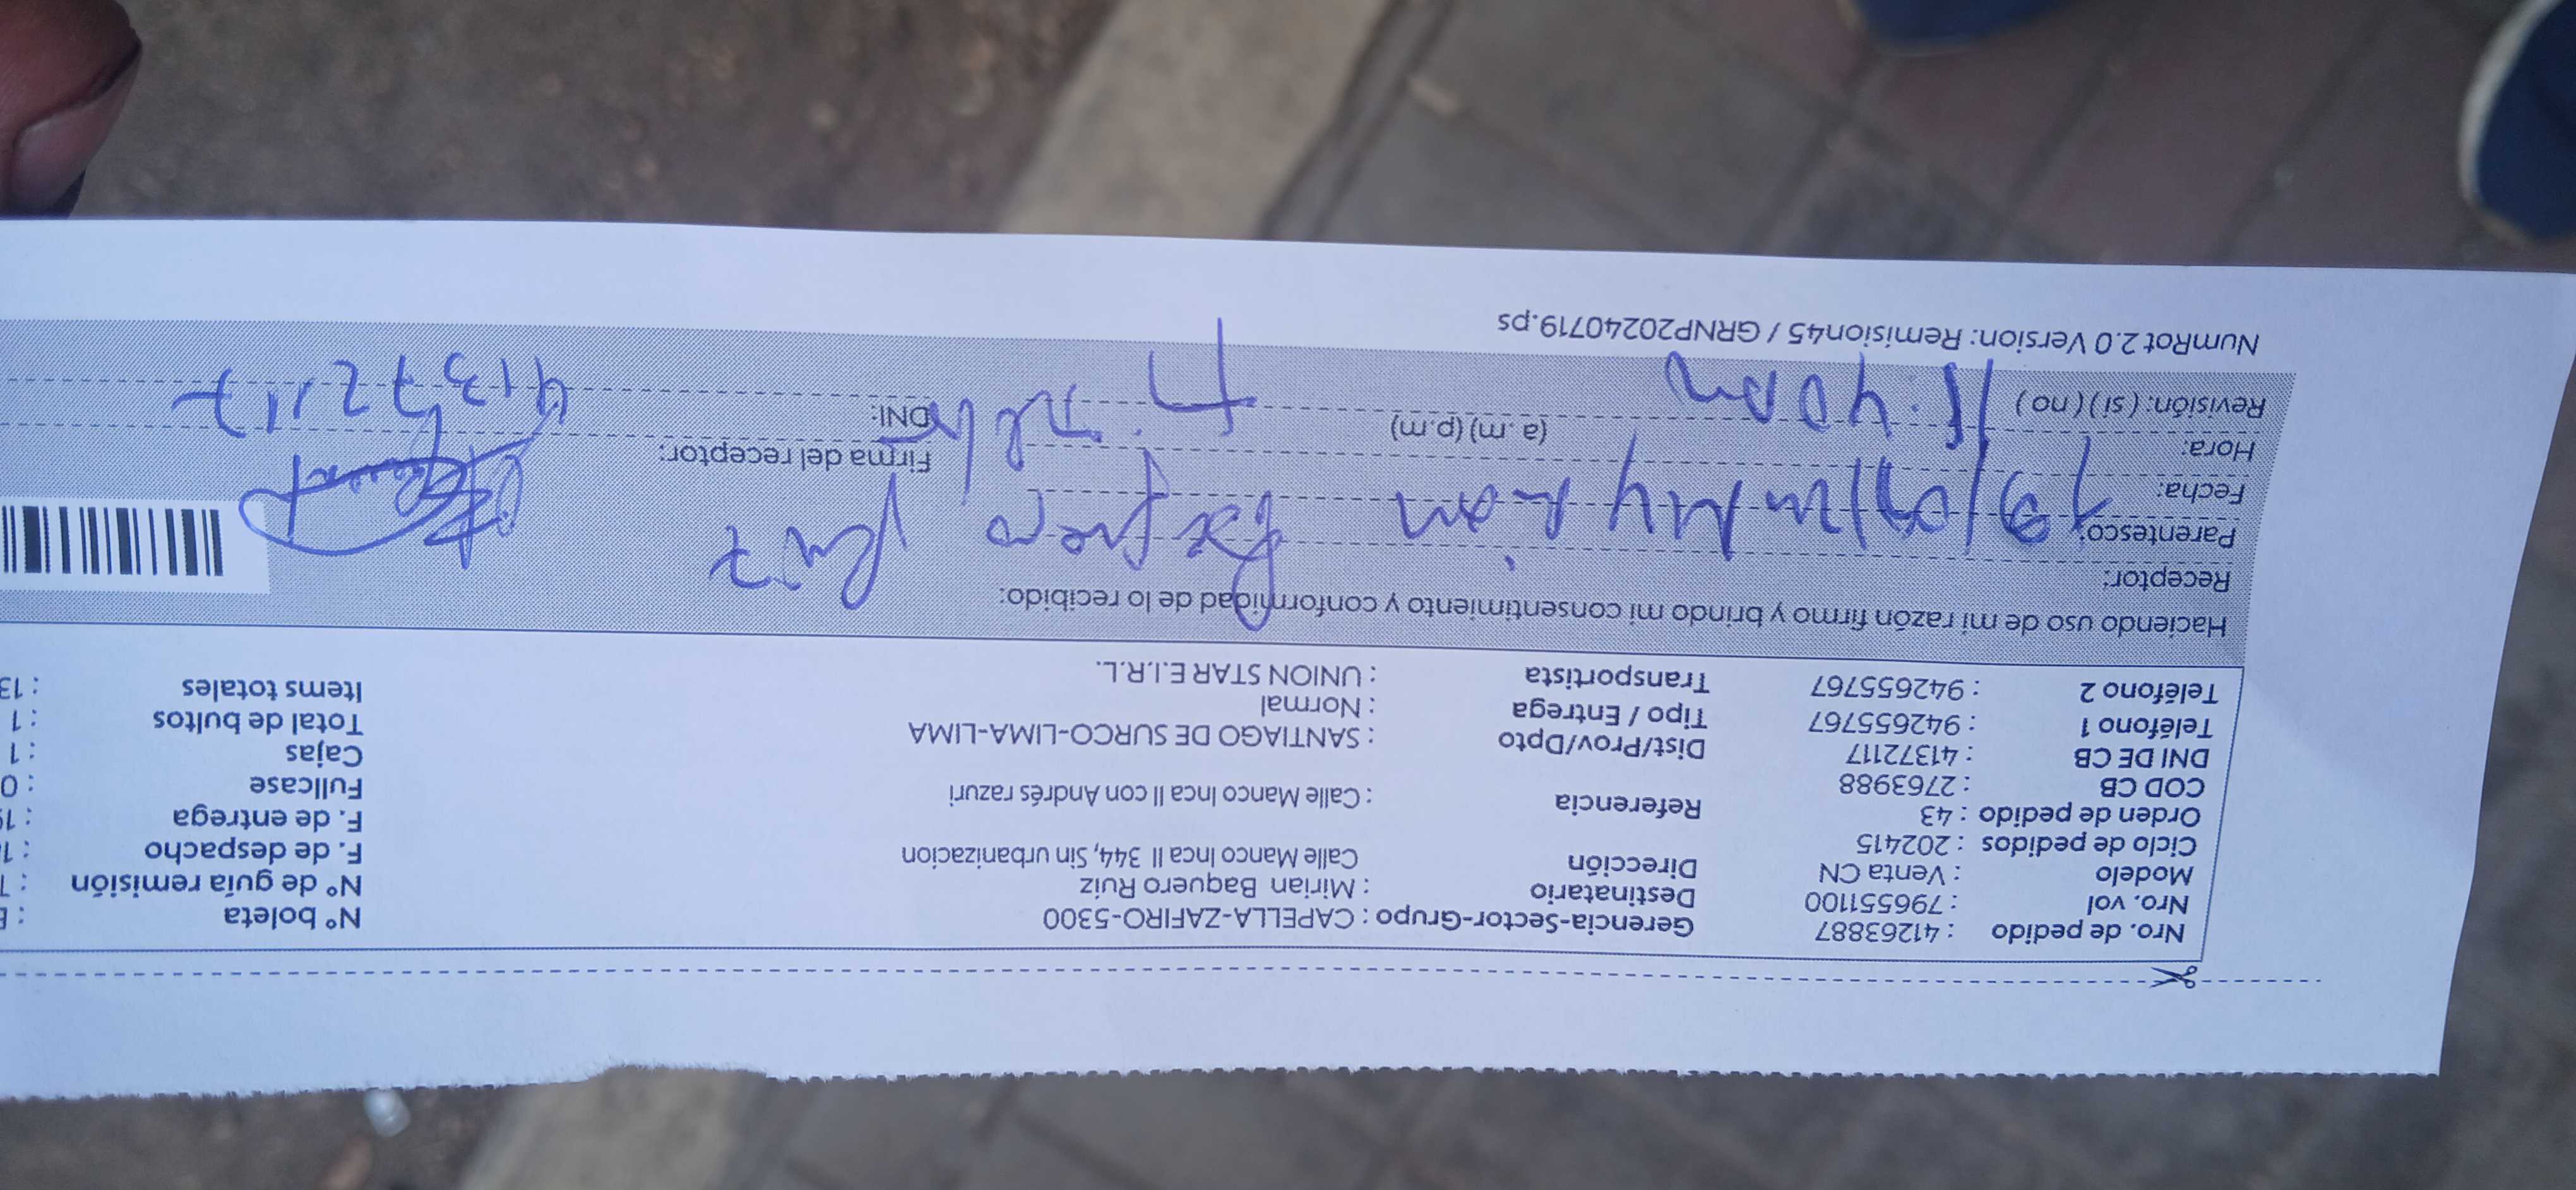 Nro. de pedido : 41263887
Nro. vol : 796551100
Modelo : Venta CN
Ciclo de pedidos : 202415
Orden de pedido : 43
COD CB : 2763988
DNI DE CB : 41372117
Teléfono 1 : 942655767
Teléfono 2 : 942655767
Gerencia-Sector-Grupo : CAPELLA-ZAFIRO-5300
Destinatario : Mirian Baquero Ruiz
Dirección Calle Manco Inca II 344, Sin urbanizacion
Referencia : Calle Manco Inca II con Andrés razuri
Dist/Prov/Dpto : SANTIAGO DE SURCO-LIMA-LIMA
Tipo / Entrega : Normal
Transportista : UNION STAR E.I.R.L.
N° boleta :
N° de guía remisión :
F. de despacho :
F. de entrega :
Fullcase : 0
Cajas : 1
Total de bultos : 1
Items totales : 13
Haciendo uso de mi razón firmo y brindo mi consentimiento y conformidad de lo recibido:
Receptor:
Parentesco:
Fecha:
Hora: (a.m) (p.m)
Revisión: (si) (no)
Firma del receptor:
DNI: 41372117
NumRot 2.0 Version: Remision45 / GRNP20240719.ps